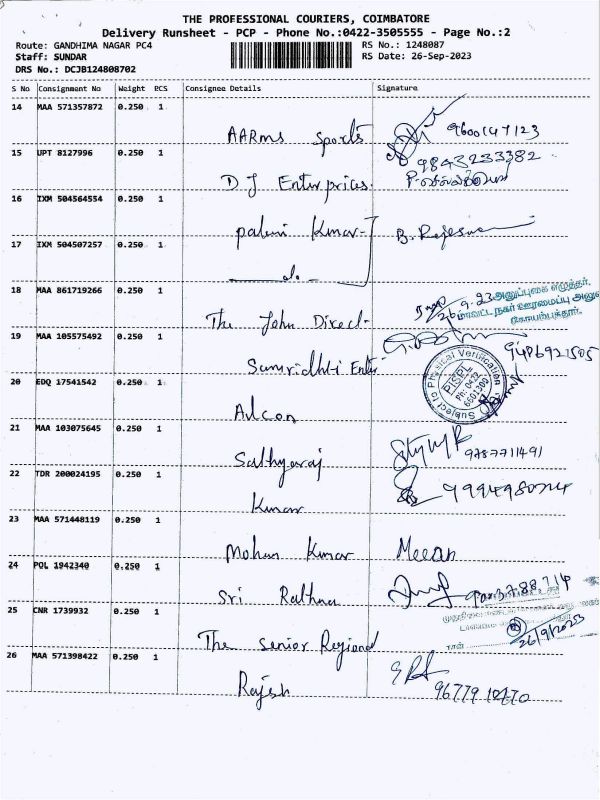 THE PROFESSIONAL COURIERS, COIMBATORE
Delivery Runsheet - PCP - Phone No.:0422-3505555 - Page No.:2
Route: GANDHIMA NAGAR PC4 RS No.: 1248087
Staff: SUNDAR RS Date: 26-Sep-2023
DRS No.: DCJB124808702
S No Consignment No Weight PCS Consignee Details Signature
14 MAA 571357872 0.250 1
AARMS Sports 9600147123
15 UPT 8127996 0.250 1
9843233382
D J Enterprices.
16 IXM 504564554 0.250 1
palani Kumar B. Rajeswari
17 IXM 504507257 0.250 1
do
18 MAA 861719266 0.250 1
26.9.23 அனுப்புகை எழுத்தர்,
மாவட்ட நகர் ஊரமைப்பு அலு
கோயம்புத்தூர்.
The John Direct-
19 MAA 105575492 0.250 1
9486921505
Samridhhi Enter
20 EDQ 17541542 0.250 1
Subject to Physical Verification
PISPL
Ph: 0422
6601300
Adcon
21 MAA 103075645 0.250 1
Sathyaraj 9787711491
22 TDR 200024195 0.250 1
Kumar
23 MAA 571448119 0.250 1
Mohan Kumar Meean
24 POL 1942340 0.250 1
Sri Rathna
25 CNR 1739932 0.250 1
26/9/2023
நாள்
The Senior Regional
26 MAA 571398422 0.250 1
Rajesh 96779 10770